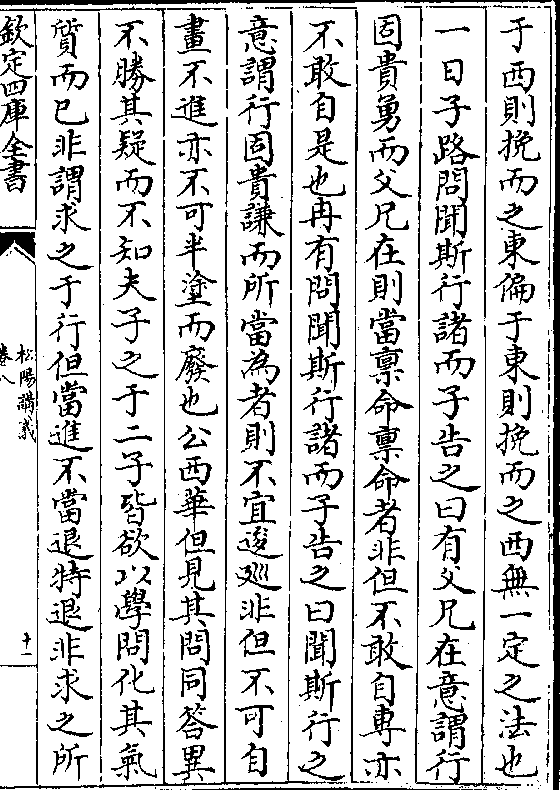 于西則挽而之東偏于東則挽而之西無一定之法也
一日子路問聞斯行諸而子告之曰有父兄在意謂行
固貴勇而父兄在則當稟命稟命者非但不敢自專亦
不敢自是也冉有問聞斯行諸而子告之曰聞斯行之
意謂行固貴謙而所當為者則不宜逡巡非但不可自
畫不進亦不可半塗而廢也公西華但見其問同答異
不勝其疑而不知夫子之于二子皆欲以學問化其氣
質而已非謂求之于行但當進不當退特退非求之所
欽定四庫全書
松陽講義
卷八
十二